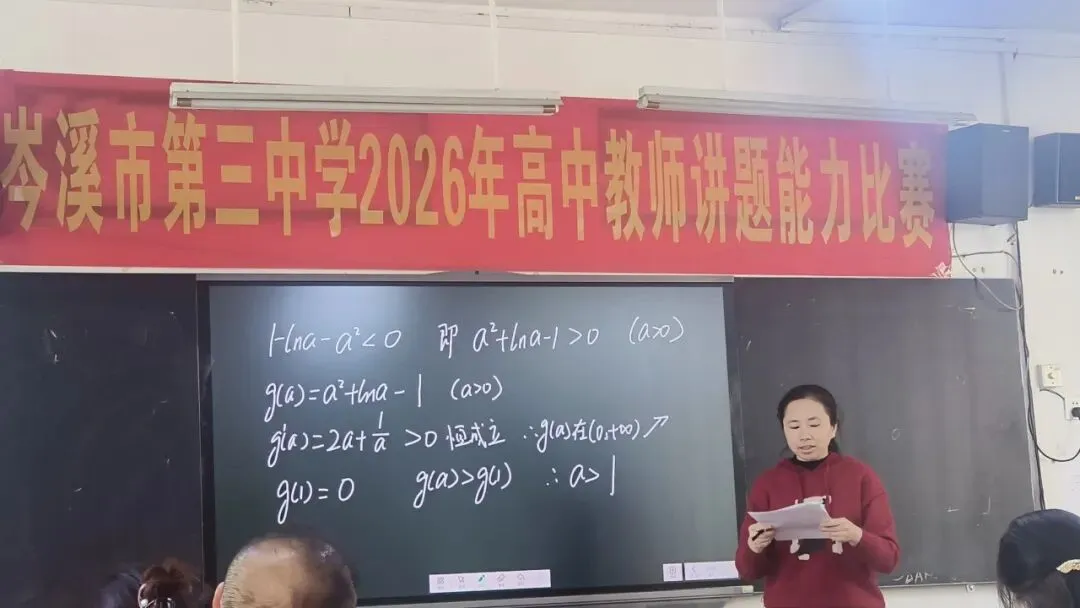 岑溪市第三中学2026年高中教师讲题能力比赛
1-lna-a²<0 即 a²+lna-1>0 (a>0)
g(a)=a²+lna-1 (a>0)
g'(a)=2a+1/a >0 恒成立 ∴g(a)在(0,+∞)↗
g(1)=0 g(a)>g(1) ∴a>1